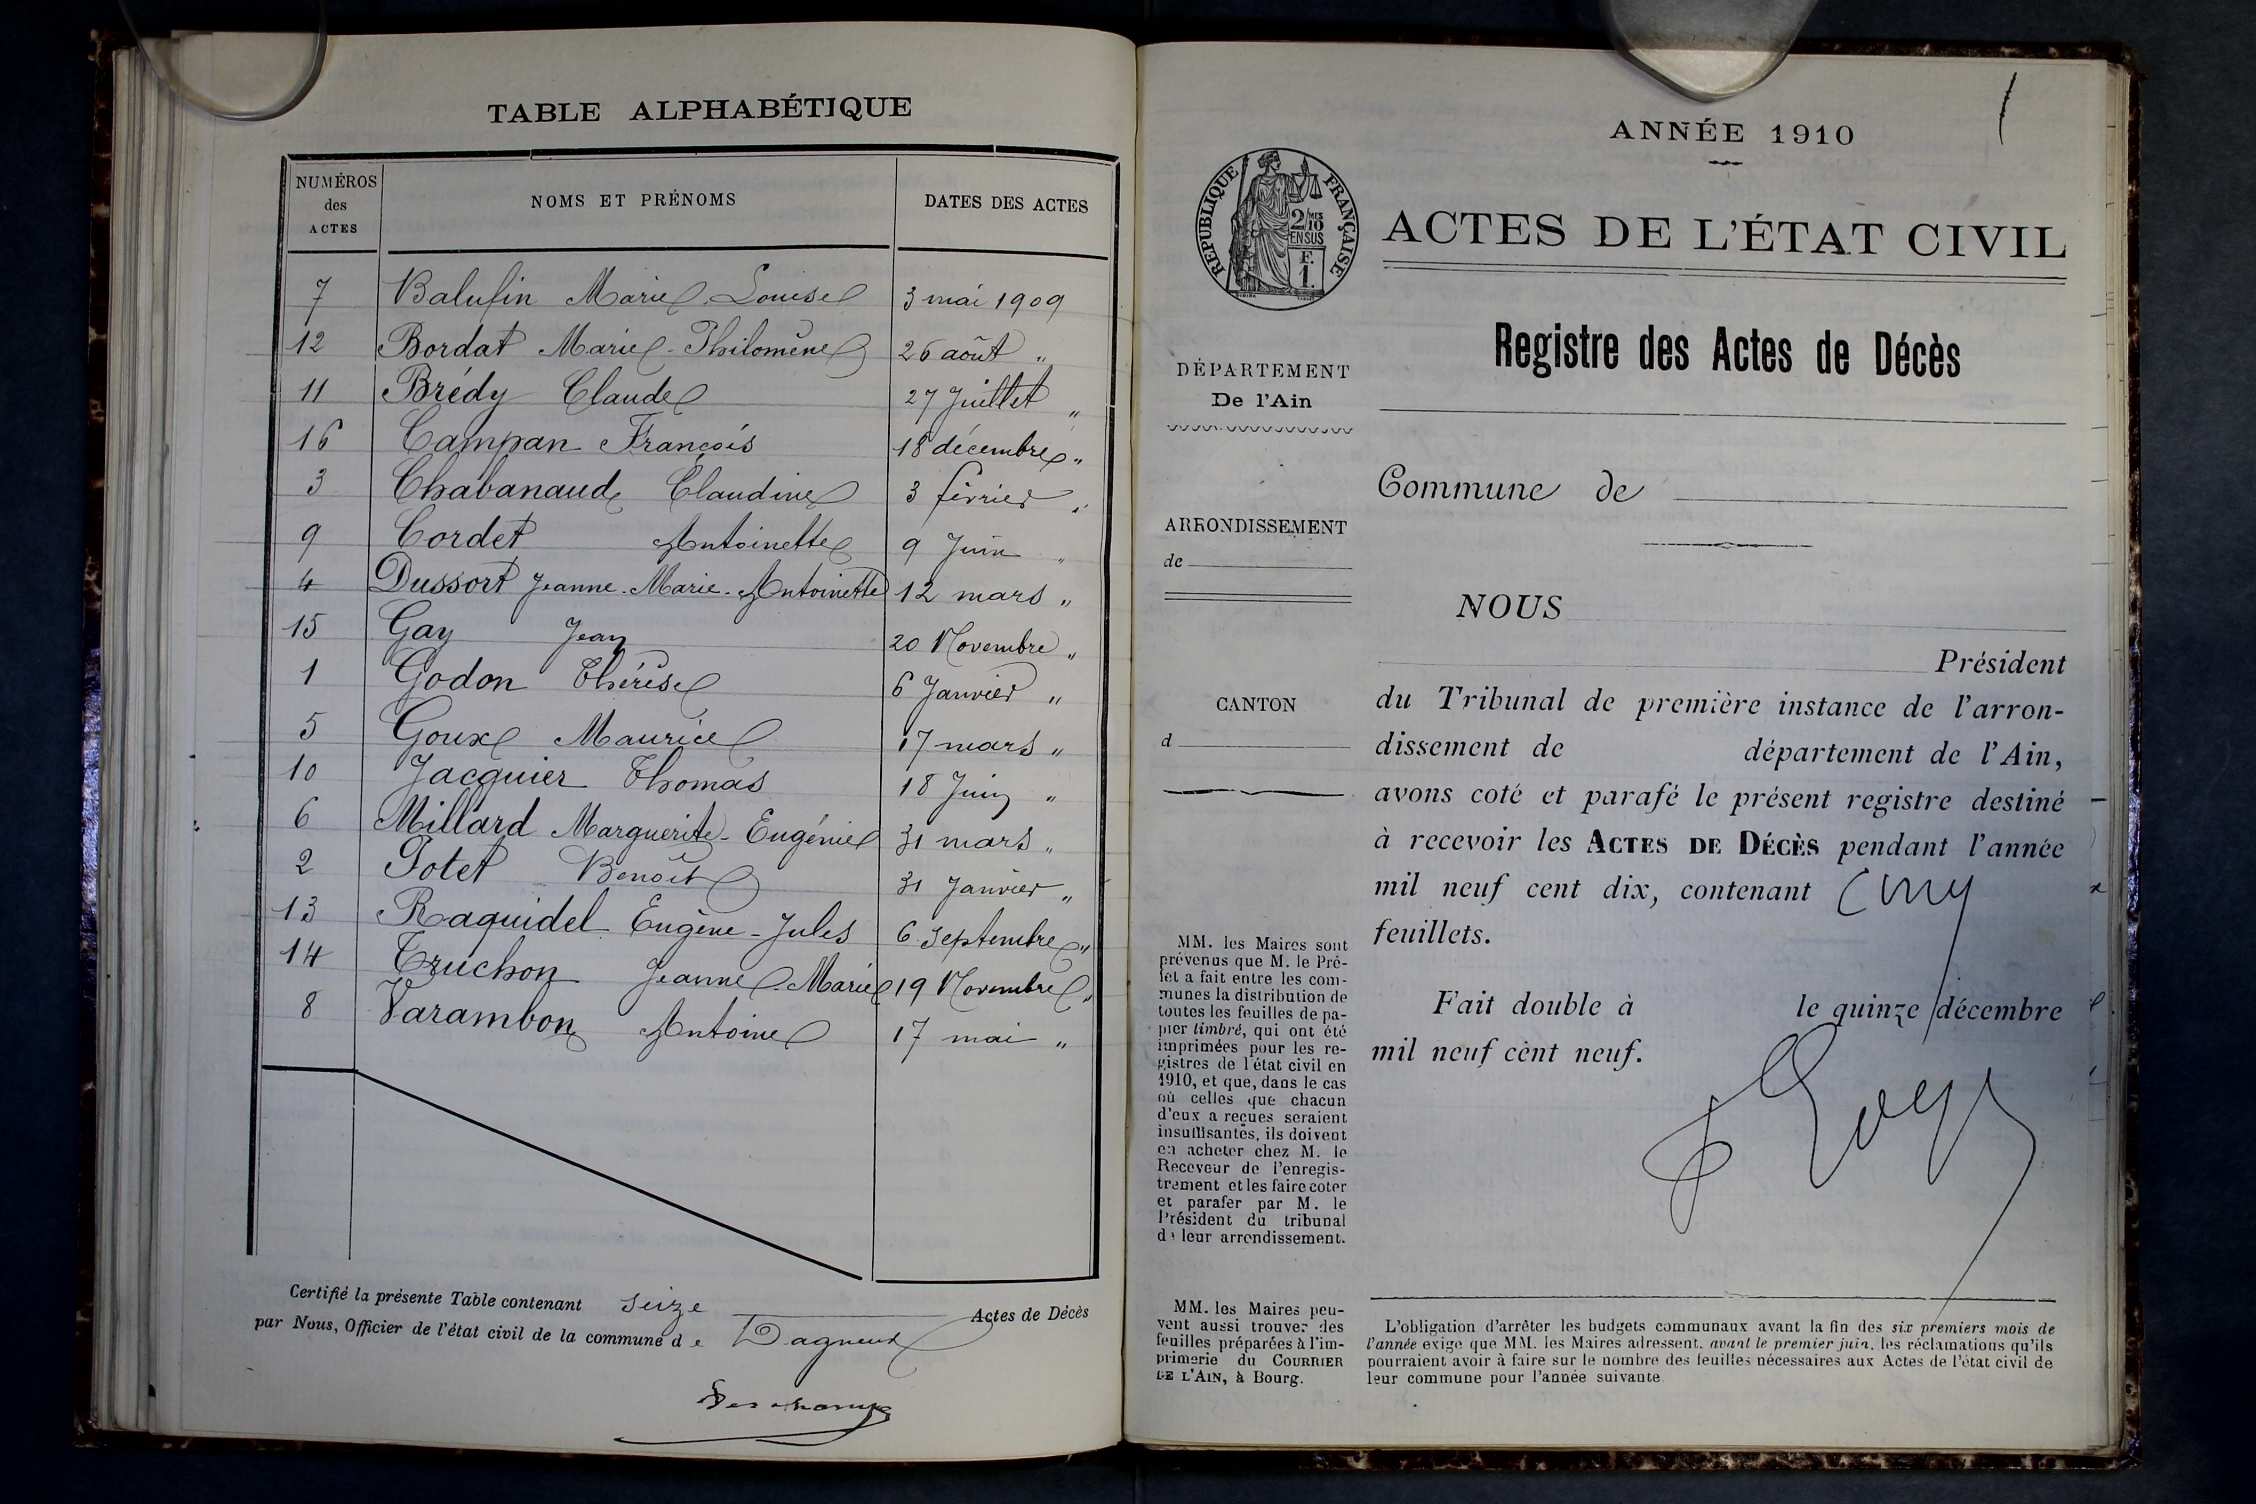 TABLE ALPHABÉTIQUE
NUMÉROS des ACTES
NOMS ET PRÉNOMS
DATES DES ACTES
7 Balufin Marie Louise 3 mai 1909
12 Bordat Marie-Philomène 26 août "
11 Brédy Claude 27 Juillet "
16 Campan François 18 décembre "
3 Chabanaud Claudine 3 février "
9 Cordet Antoinette 9 Juin "
4 Dussort Jeanne-Marie-Antoinette 12 mars "
15 Gay Jean 20 Novembre "
1 Godon Thérèse 6 Janvier "
5 Goux Maurice 17 mars "
10 Jacquier Thomas 18 Juin "
6 Millard Marguerite-Eugénie 31 mars "
2 Potet Benoît 31 Janvier "
13 Raquidel Eugène-Jules 6 septembre "
14 Truchon Jeanne-Marie 19 Novembre "
8 Varambon Antoine 17 mai "
Certifié la présente Table contenant seize Actes de Décès
par Nous, Officier de l'état civil de la commune de Dagneux
1
ANNÉE 1910
RÉPUBLIQUE FRANÇAISE
2/10 MES
EN SUS
F.
1.
ACTES DE L'ÉTAT CIVIL
Registre des Actes de Décès
DÉPARTEMENT
De l'Ain
ARRONDISSEMENT
de
CANTON
d
MM. les Maires sont
prévenus que M. le Pré-
fet a fait entre les com-
munes la distribution de
toutes les feuilles de pa-
pier timbré, qui ont été
imprimées pour les re-
gistres de l'état civil en
1910, et que, dans le cas
où celles que chacun
d'eux a reçues seraient
insuffisantes, ils doivent
en acheter chez M. le
Receveur de l'enregis-
trement et les faire coter
et parafer par M. le
Président du tribunal
de leur arrondissement.
MM. les Maires peu-
vent aussi trouver des
feuilles préparées à l'im-
primerie du COURRIER
DE L'AIN, à Bourg.
Commune de
NOUS
Président
du Tribunal de première instance de l'arron-
dissement de département de l'Ain,
avons coté et parafé le présent registre destiné
à recevoir les ACTES DE DÉCÈS pendant l'année
mil neuf cent dix, contenant cinq
feuillets.
Fait double à le quinze décembre
mil neuf cent neuf.
L'obligation d'arrêter les budgets communaux avant la fin des six premiers mois de
l'année exige que MM. les Maires adressent, avant le premier juin, les réclamations qu'ils
pourraient avoir à faire sur le nombre des feuilles nécessaires aux Actes de l'état civil de
leur commune pour l'année suivante